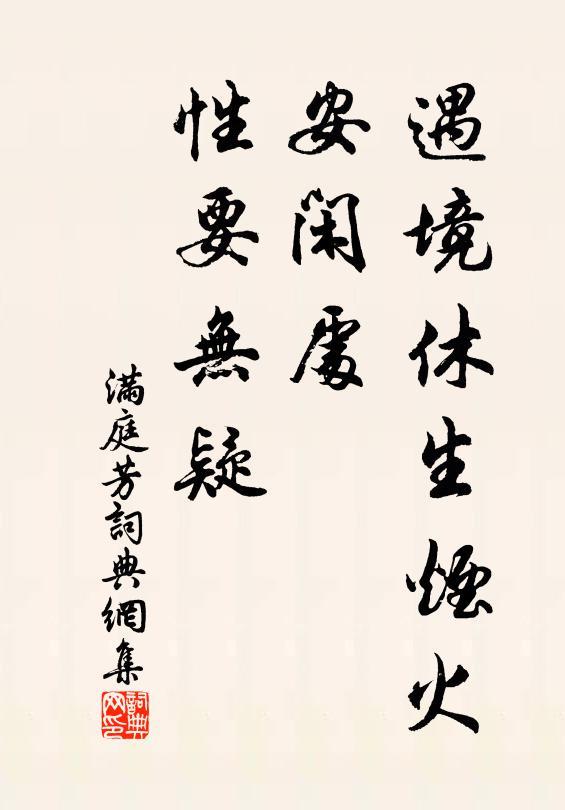 遇境休生煙火
安閑處
性要無疑
滿庭芳詞典網集
詞典网印